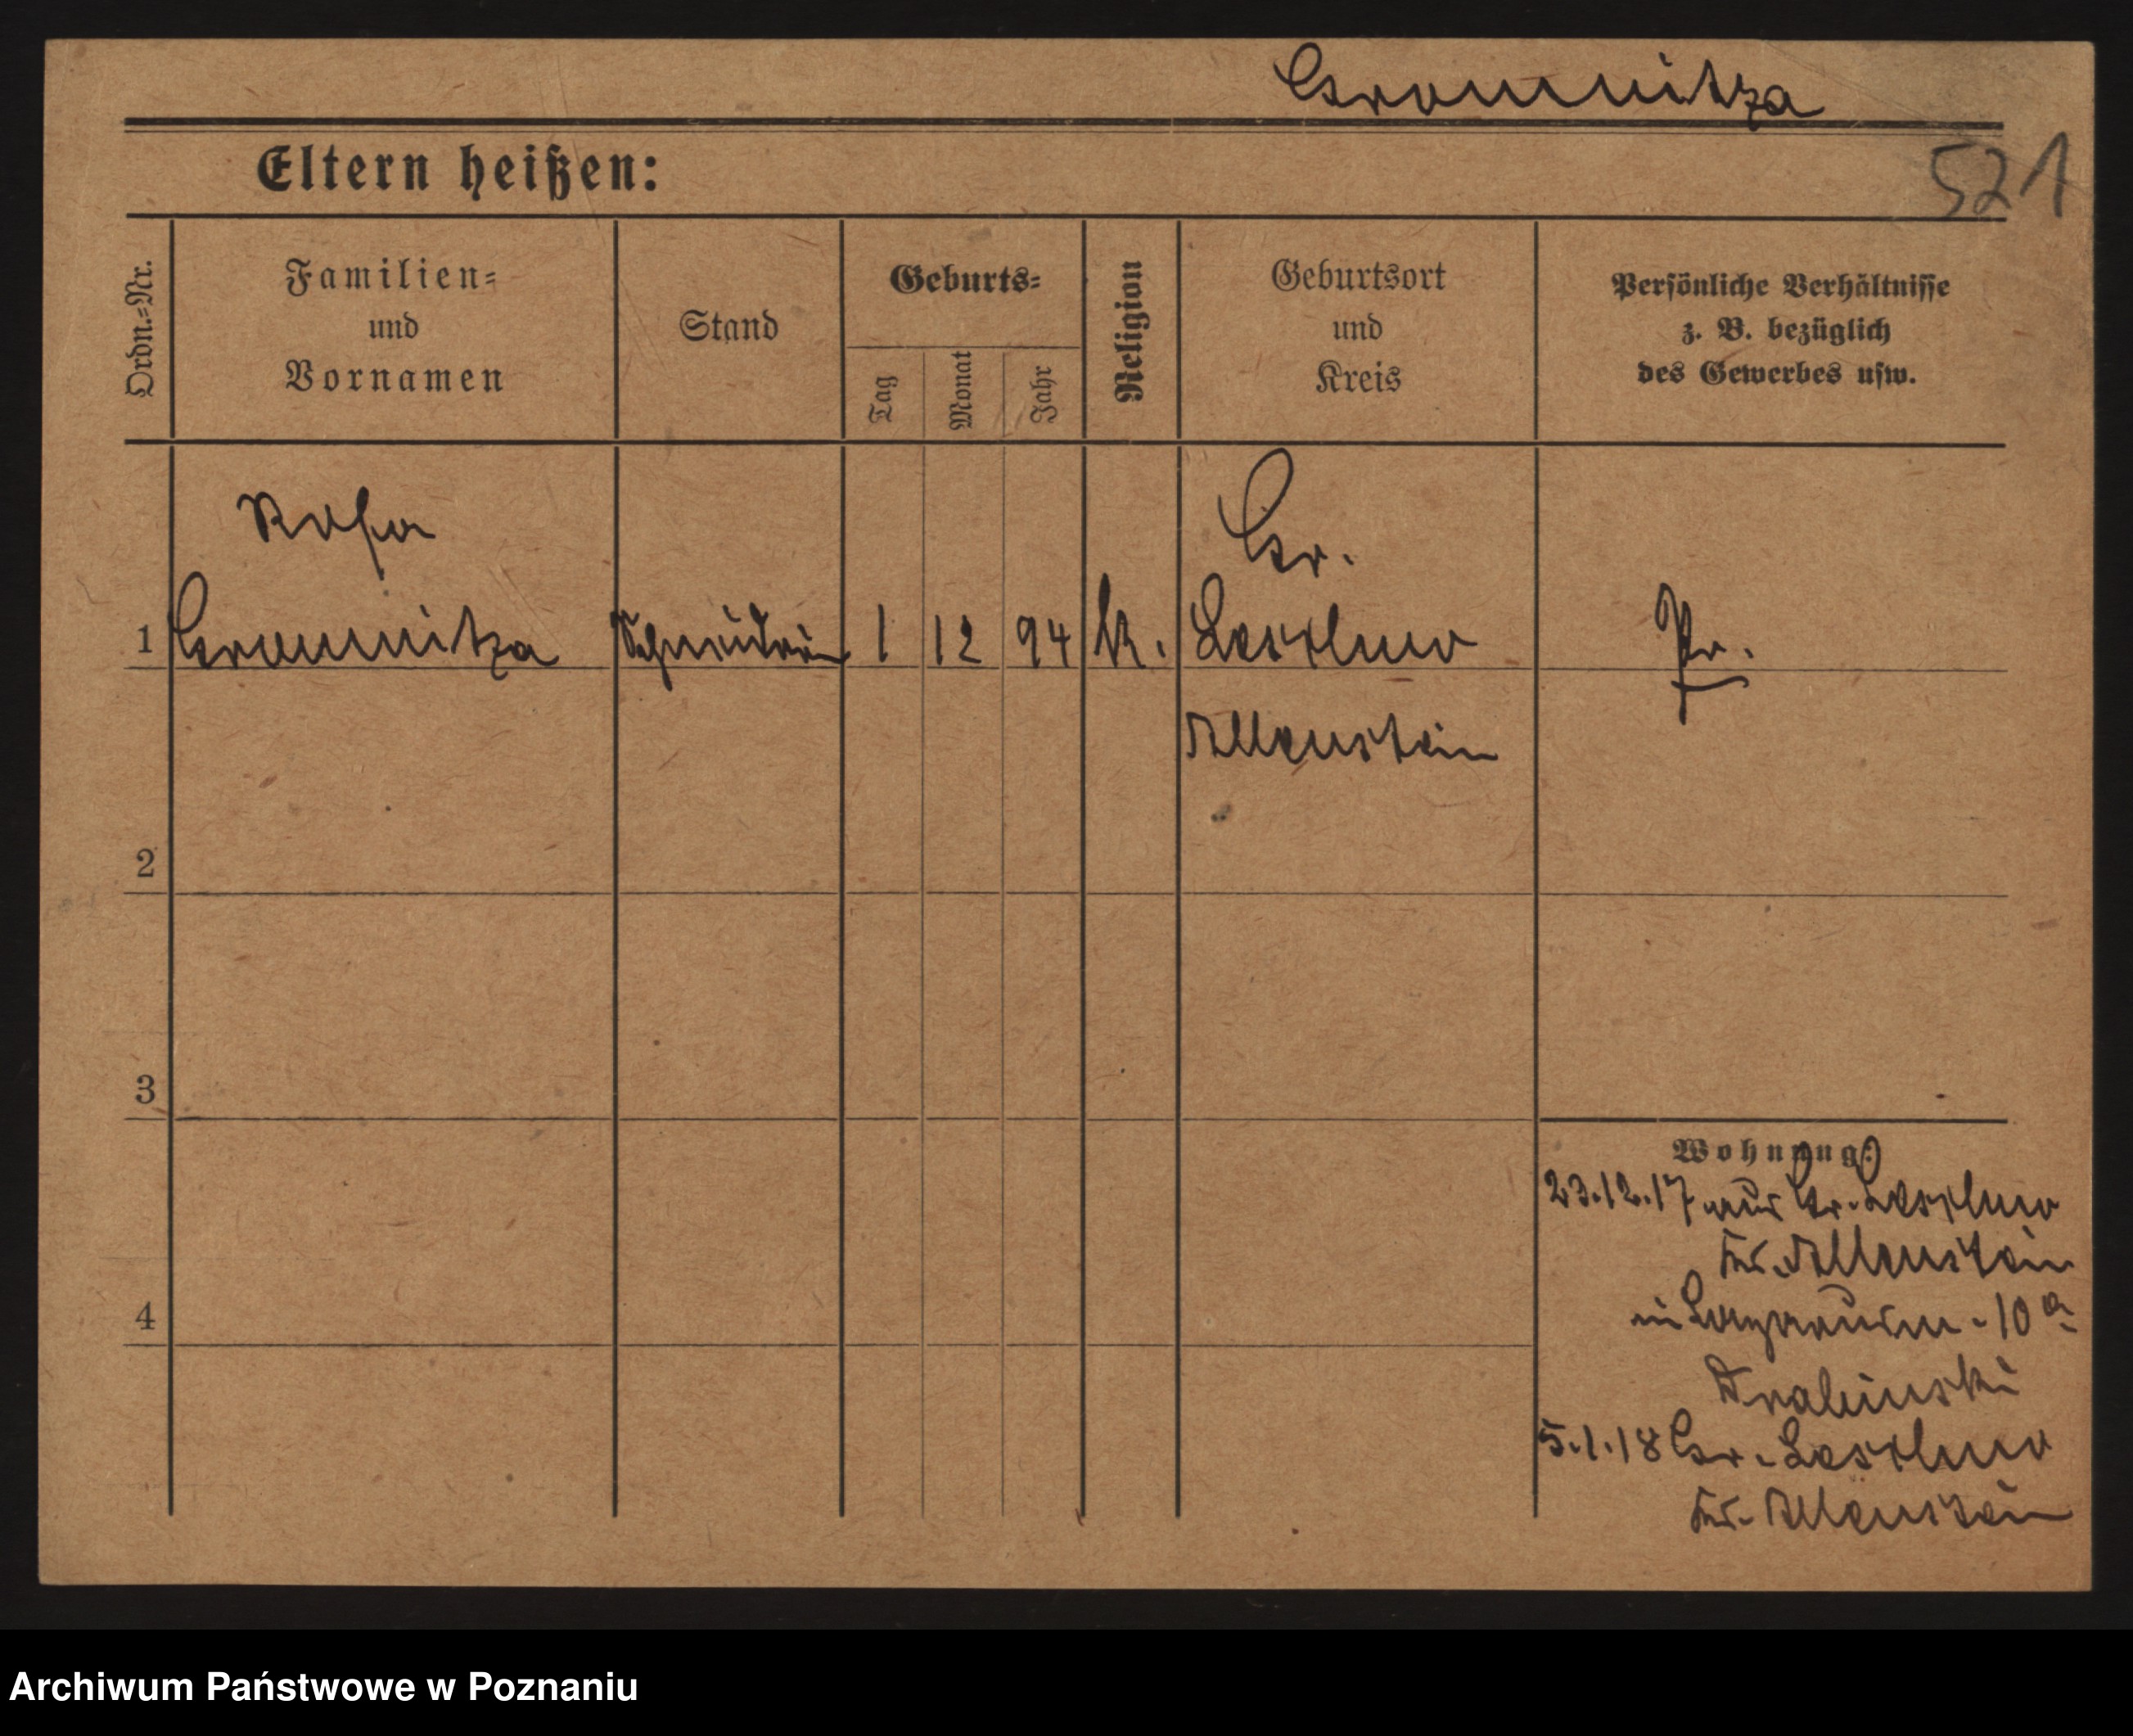 Gronmitza
521
Eltern heißen:
Ordn.=Nr.
Familien=
und
Vornamen
Stand
Geburts=
Tag
Monat
Jahr
Religion
Geburtsort
und
Kreis
Persönliche Verhältnisse
z. B. bezüglich
des Gewerbes usw.
Rosa
1 Gronmitza Schneiderin 1 12 94 k. Pr.
Gr.
Allenstein
2
3
4
Wohnung:
23.12.17 aus Gr.
Kr. Allenstein
in 10 a
5.1.18 Gr.
Kr. Allenstein
Archiwum Państwowe w Poznaniu